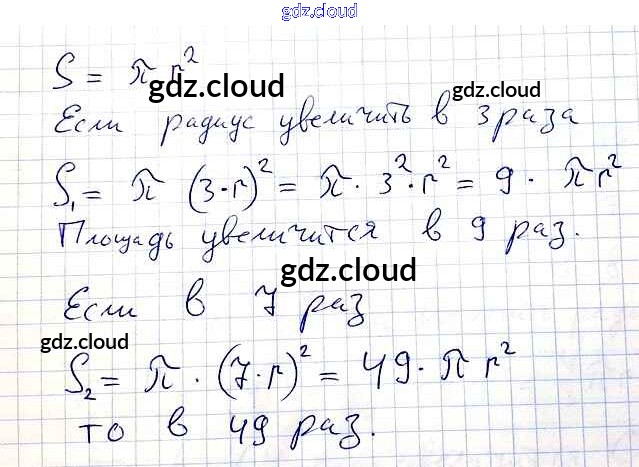 gdz.cloud
S = π r²
gdz.cloud gdz.cloud
Если радиус увеличить в 3 раза
S₁ = π (3·r)² = π · 3² · r² = 9 · πr²
Площадь увеличится в 9 раз.
gdz.cloud
Если в 7 раз
gdz.cloud
S₂ = π · (7·r)² = 49 · π r²
то в 49 раз.